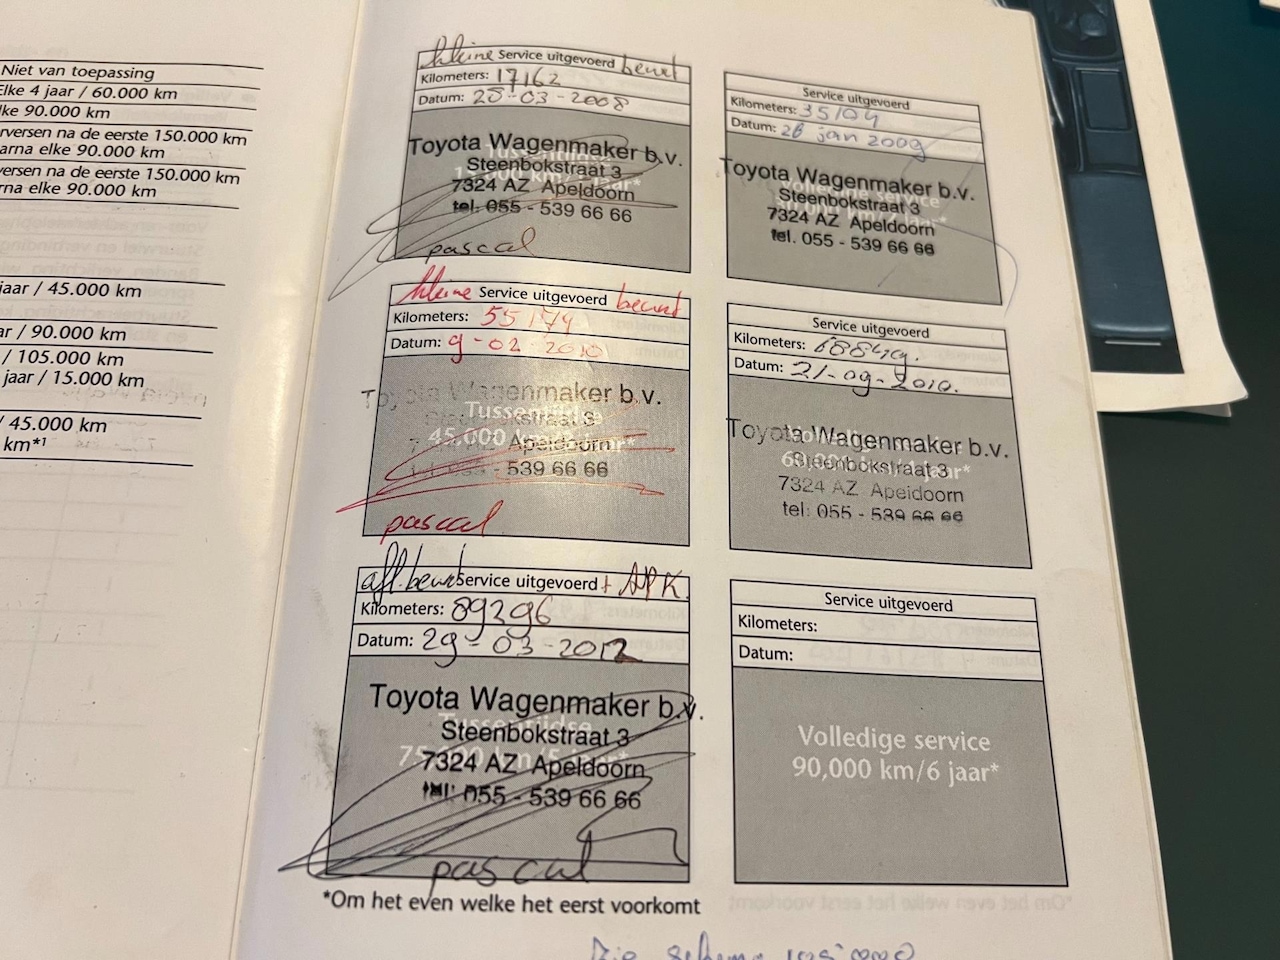 Niet van toepassing
Elke 4 jaar / 60.000 km
lke 90.000 km
rversen na de eerste 150.000 km
arna elke 90.000 km
versen na de eerste 150.000 km
rna elke 90.000 km
jaar / 45.000 km
ar / 90.000 km
/ 105.000 km
jaar / 15.000 km
/ 45.000 km
km*1
kleine Service uitgevoerd beurt
Kilometers: 17162
Datum: 28-03-2008
Toyota Wagenmaker b.v.
Steenbokstraat 3
7324 AZ Apeldoorn
tel. 055 - 539 66 66
pascal
Service uitgevoerd
Kilometers: 35104
Datum: 26 jan 2009
Toyota Wagenmaker b.v.
Volledige service
Steenbokstraat 3
7324 AZ Apeldoorn
tel. 055 - 539 66 66
kleine Service uitgevoerd beurt
Kilometers: 55174
Datum: 9-02-2010
Toyota Wagenmaker b.v.
Tussentijdse
Steenbokstraat 3
45.000
7324 AZ Apeldoorn
tel. 055 - 539 66 66
pascal
Service uitgevoerd
Kilometers: 68849.
Datum: 21-09-2010.
Toyota Wagenmaker b.v.
Steenbokstraat 3
7324 AZ Apeldoorn
tel: 055 - 539 66 66
afl.beurt Service uitgevoerd + APK.
Kilometers: 89296
Datum: 29-03-2012
Toyota Wagenmaker b.v.
Tussentijdse
Steenbokstraat 3
7324 AZ Apeldoorn
tel: 055 - 539 66 66
pascal
Service uitgevoerd
Kilometers:
Datum:
Volledige service
90,000 km/6 jaar*
*Om het even welke het eerst voorkomt